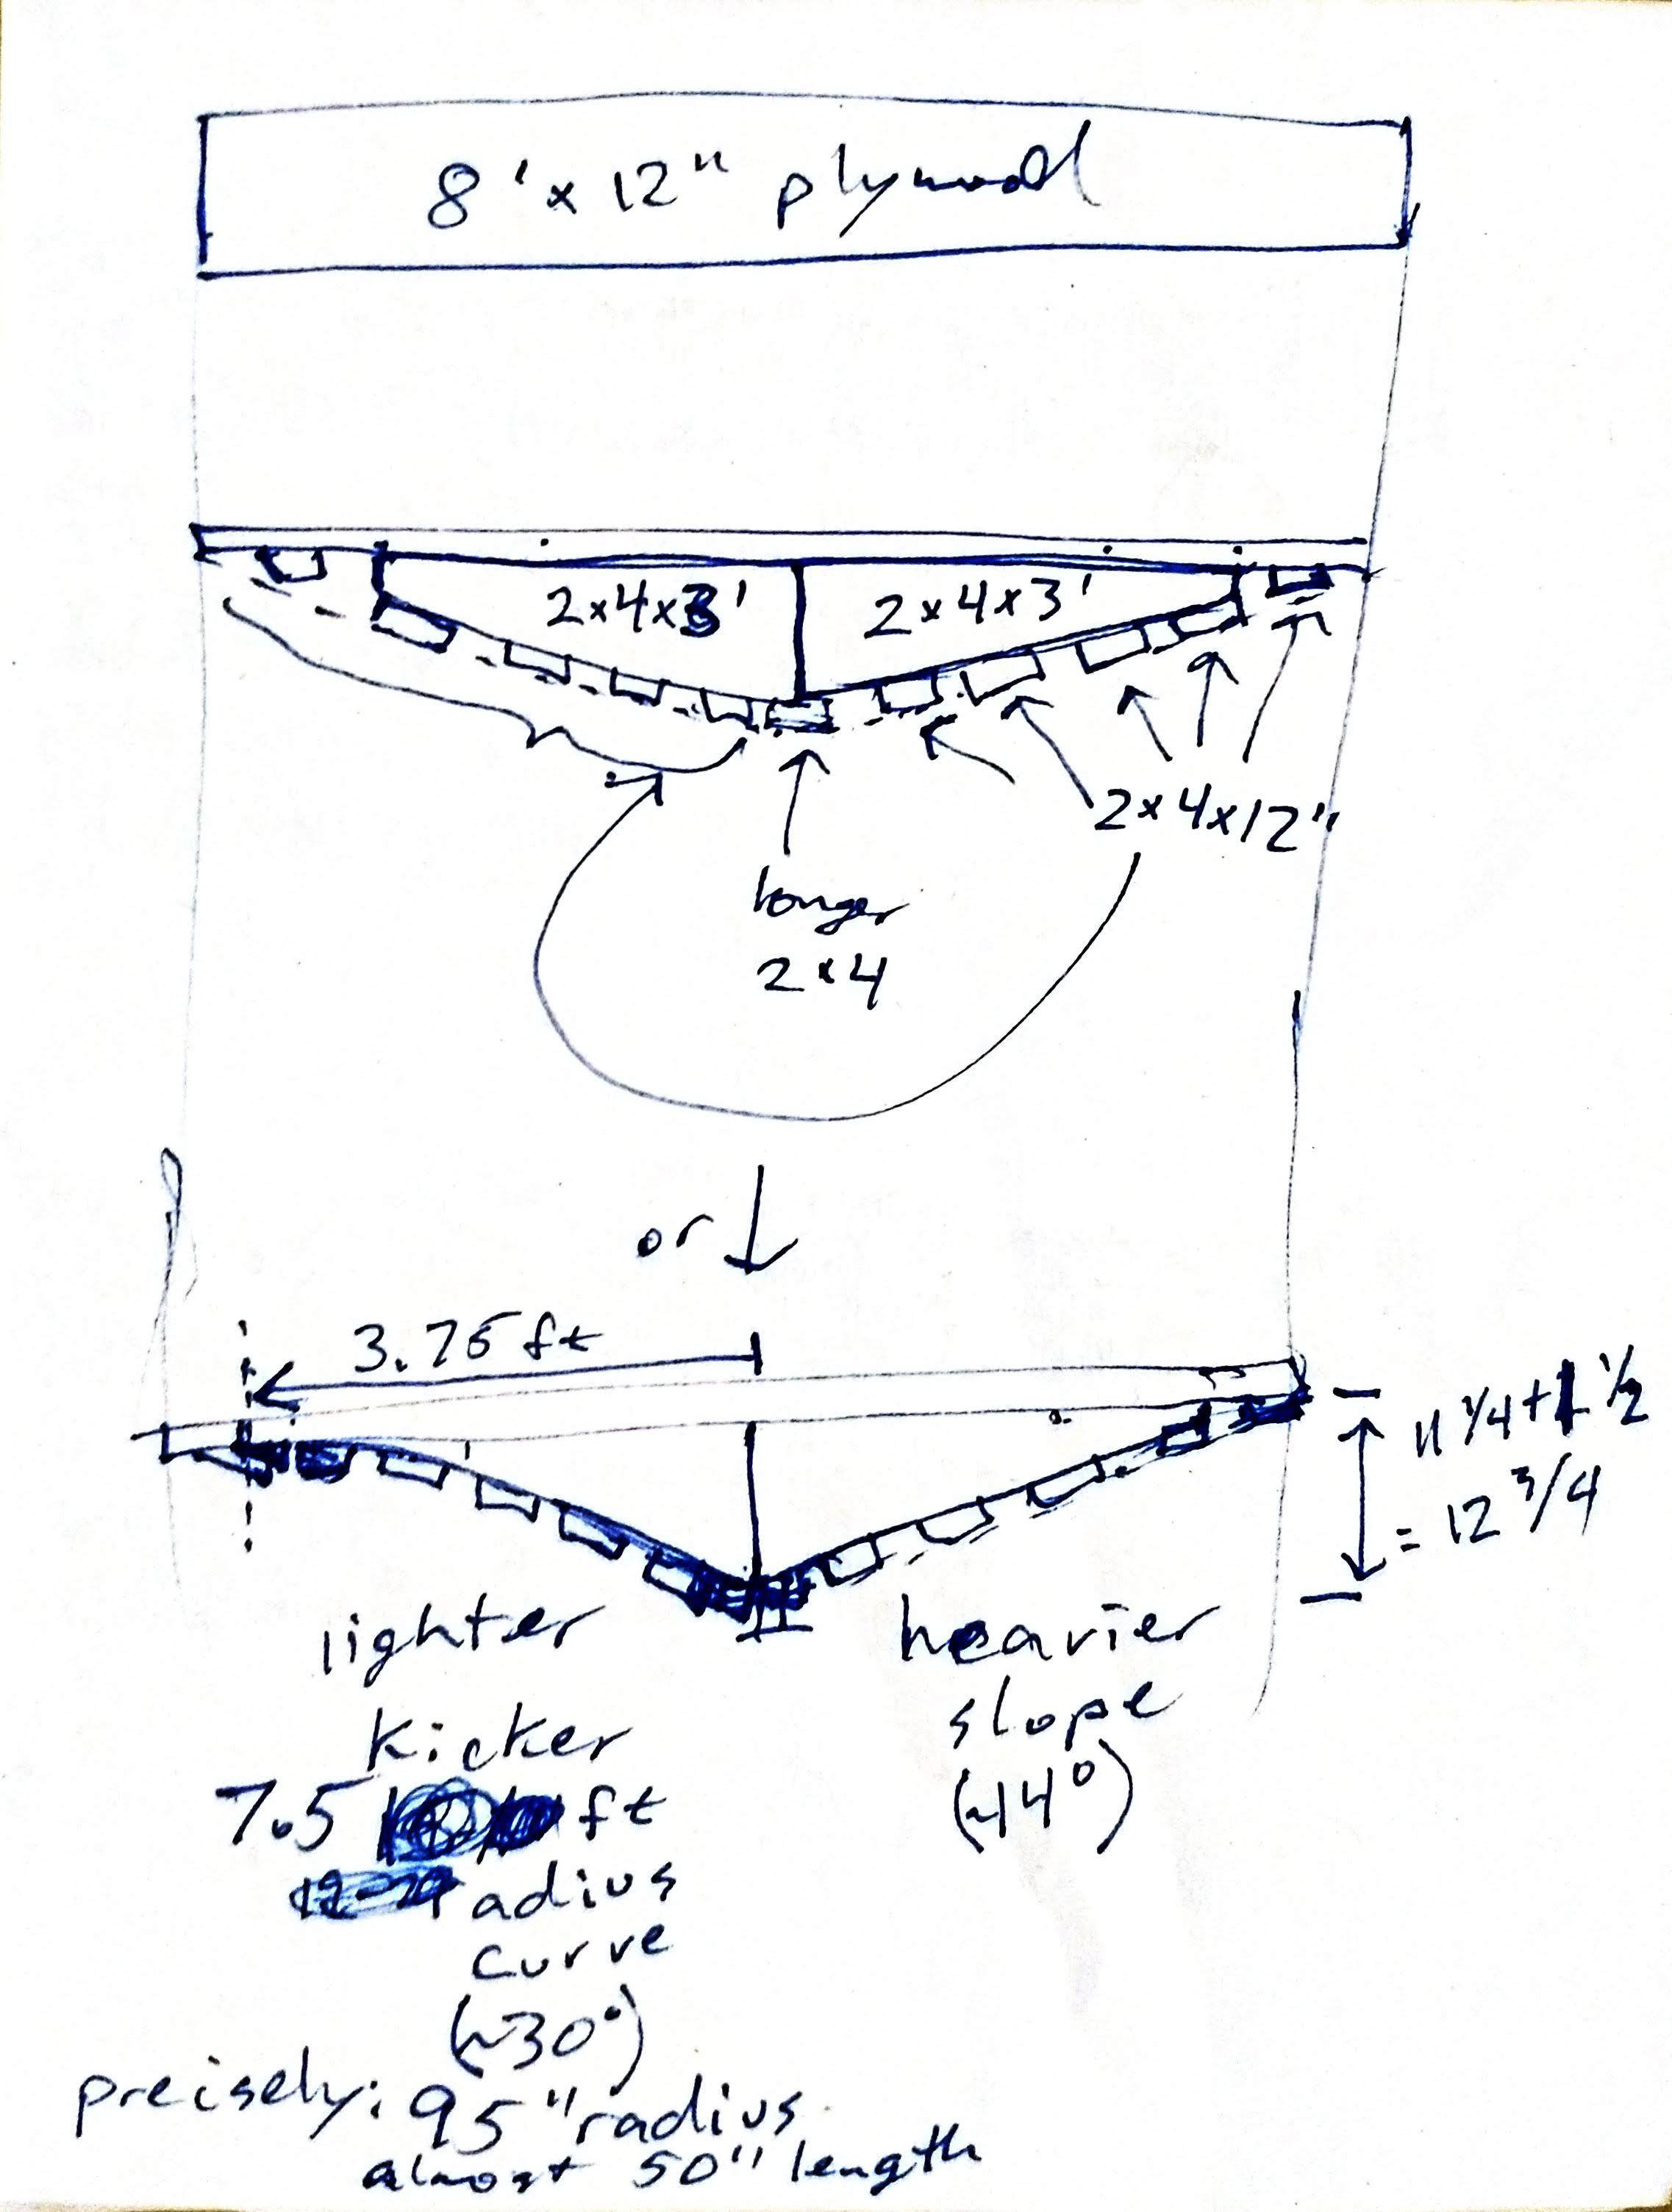 8' x 12" plywood
2x4x3' 2x4x3'
2x4x12"
longer
2x4
or
3.75 ft
11 1/4 + 1 1/2
= 12 3/4
lighter
kicker
7.5 ft
radius
curve
(~30°)
heavier
slope
(~14°)
precisely: 95" radius
almost 50" length